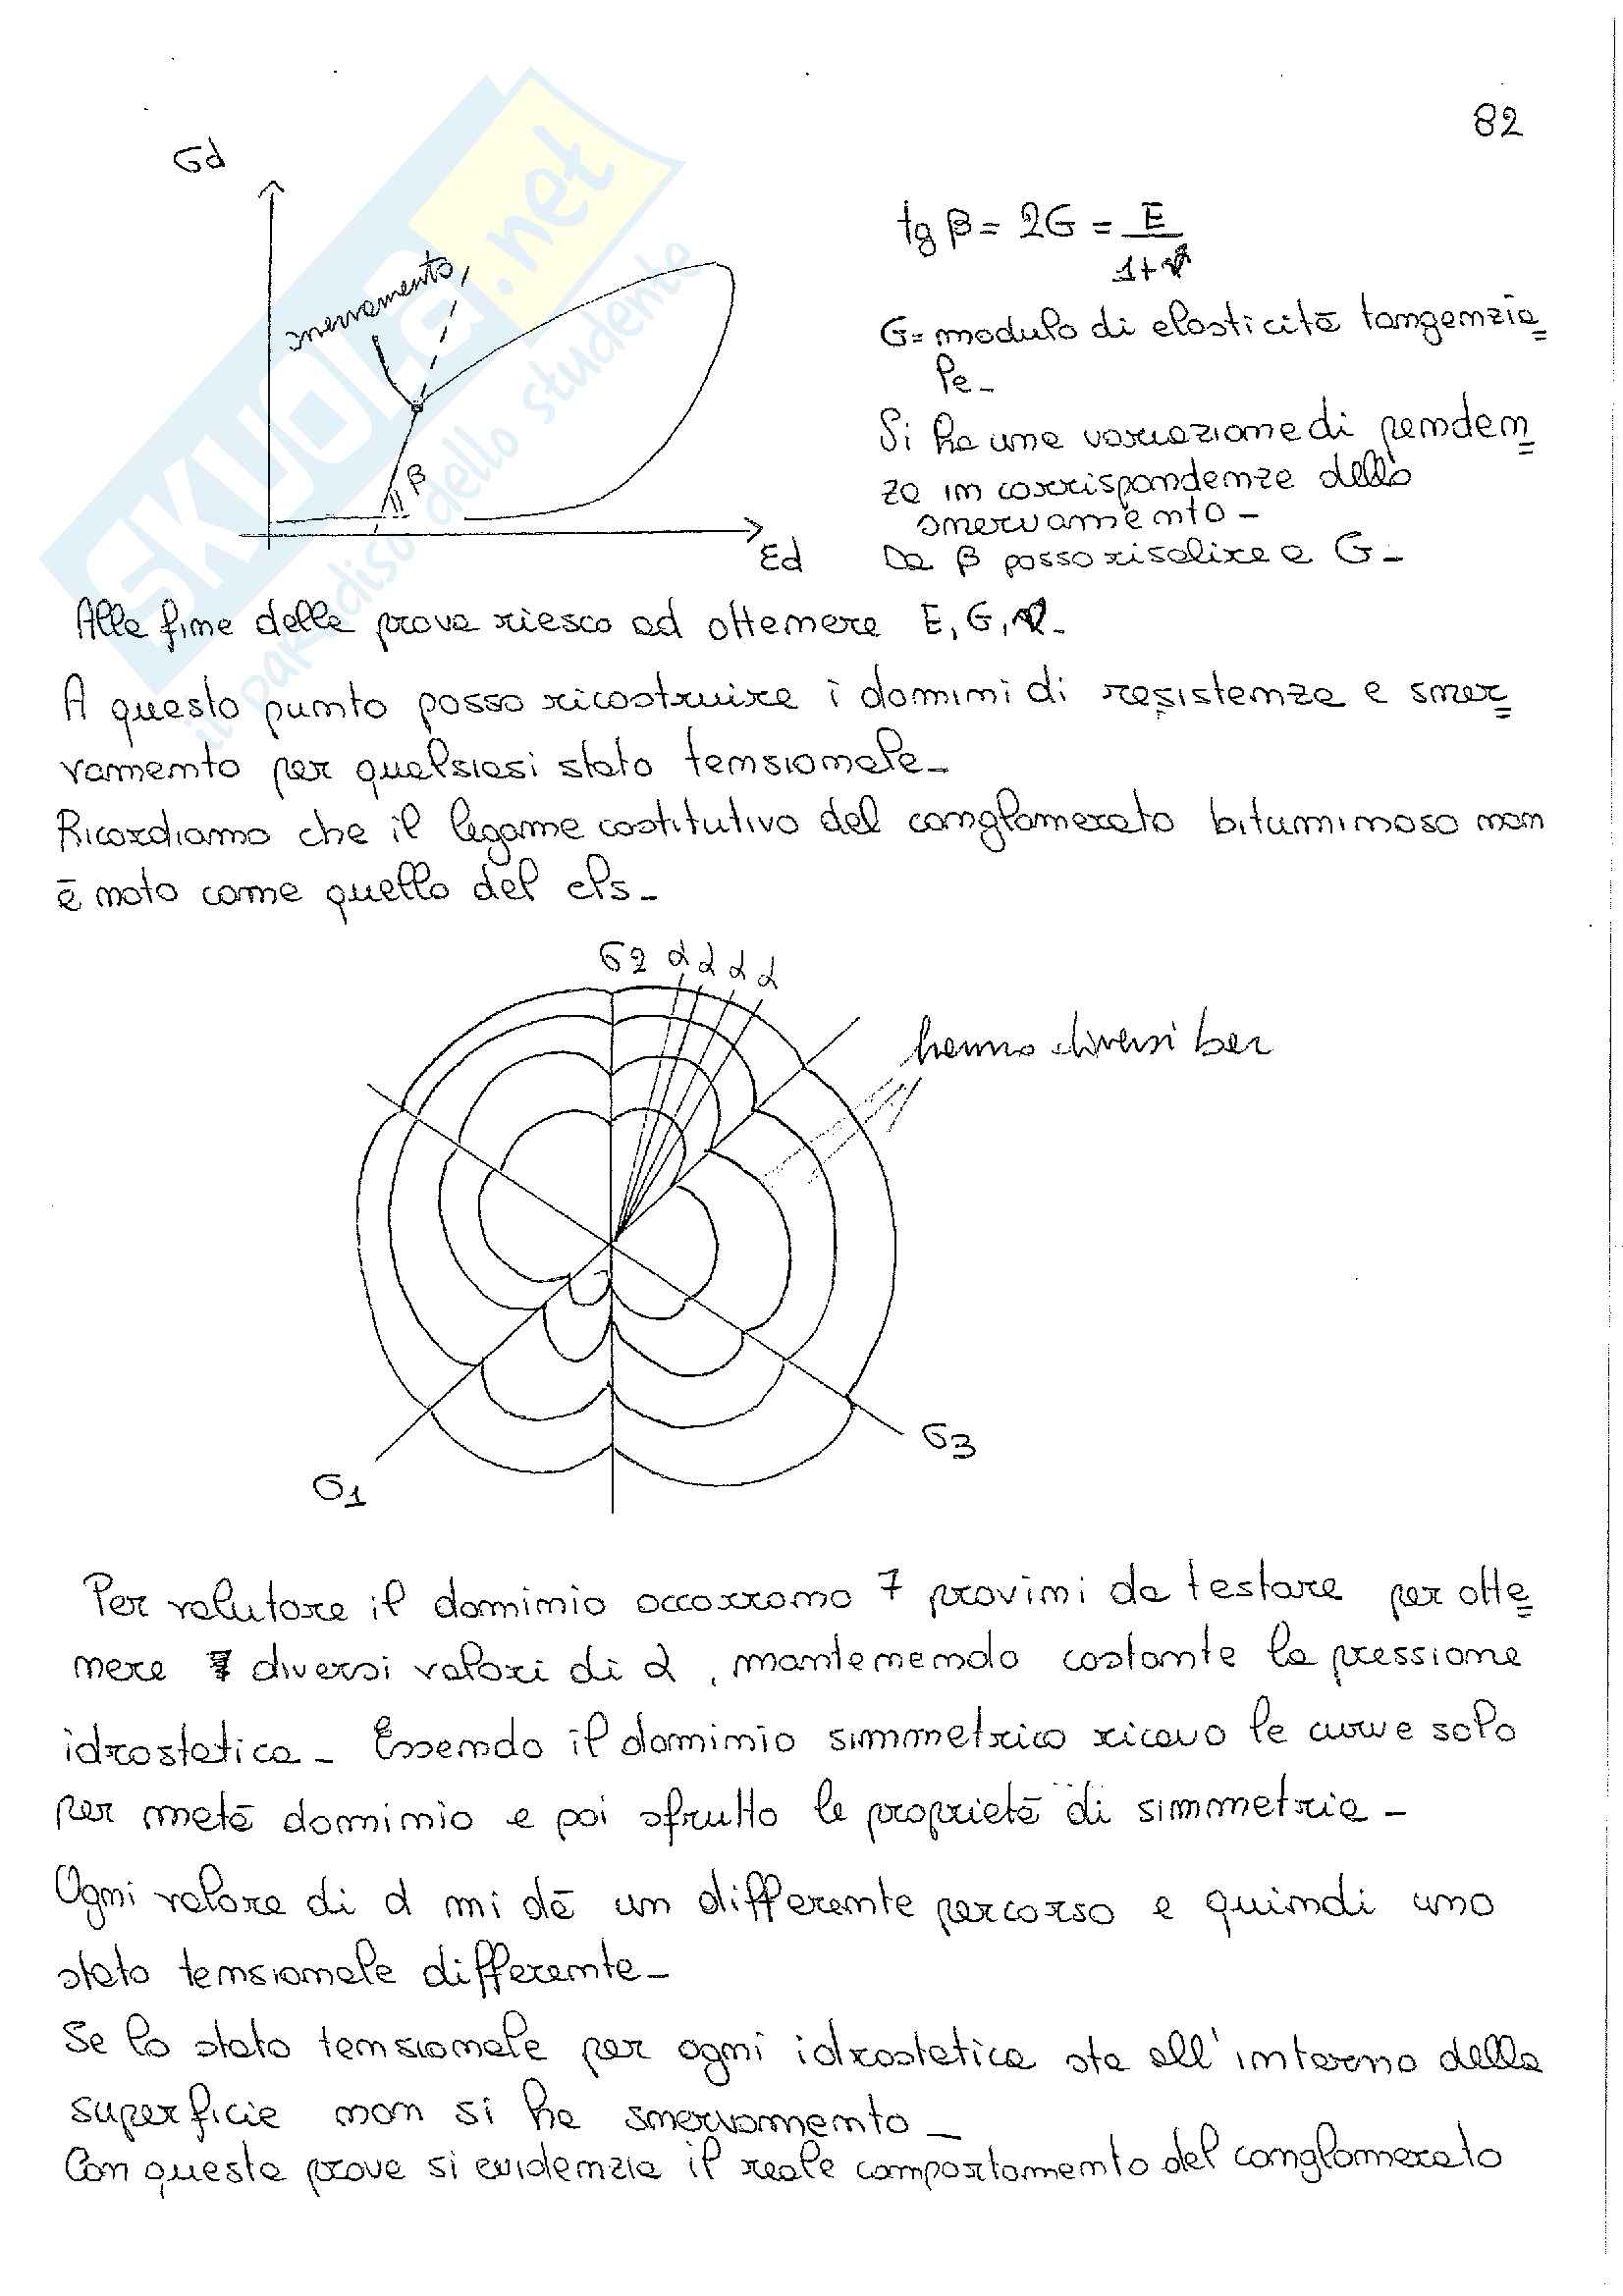 82
σd
tg β = 2G = E
1+ν
snervamento
G= modulo di elasticità tangenzia=
le-
Si ha una variazione di penden=
za in corrispondenza dello
snervamento-
β
εd
Da β posso risalire a G-
Alla fine della prova riesco ad ottenere E, G, ν-
A questo punto posso ricostruire i domini di resistenza e sner=
vamento per qualsiasi stato tensionale-
Ricordiamo che il legame costitutivo del conglomerato bituminoso non
è noto come quello del cls-
σ2 α α α α
hanno diversi bar
σ3
σ1
Per valutare il dominio occorrono 7 provini da testare per otte=
nere 7 diversi valori di α, mantenendo costante la pressione
idrostatica- Essendo il dominio simmetrico ricavo le curve solo
per metà dominio e poi sfrutto le proprietà di simmetria-
Ogni valore di α mi dà un differente percorso e quindi uno
stato tensionale differente-
Se lo stato tensionale per ogni idrostatica sta all'interno della
superficie non si ha snervamento-
Con questa prova si evidenzia il reale comportamento del conglomerato
SKUOLA.net
il paradiso dello studente